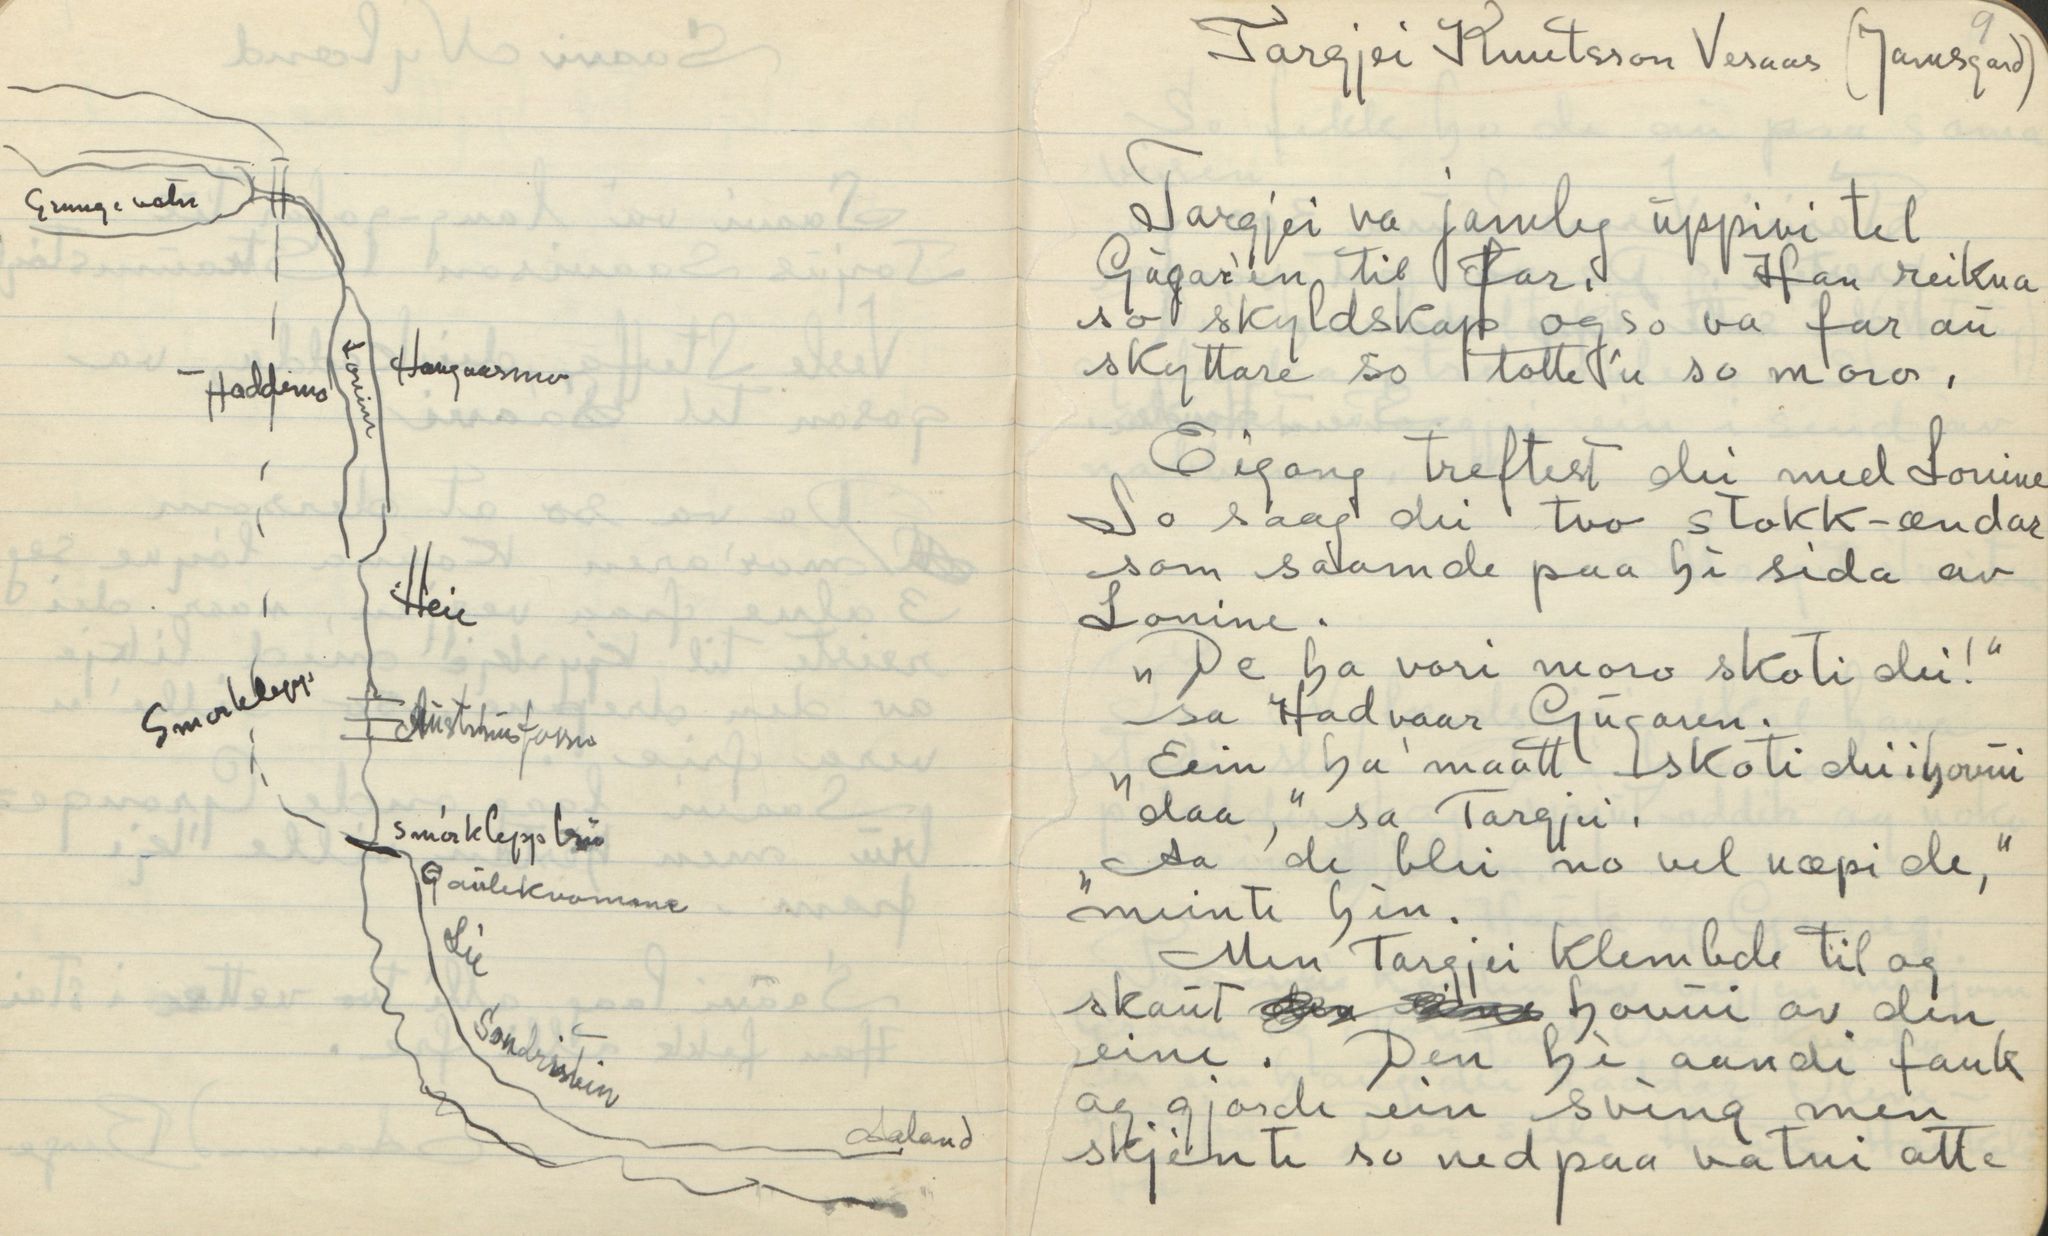 Grungevatn
Haddemo
Lonin
Haugaasmo
Heie
Smorklepp
Austhusfosso
Smorkleppbrü
Gaulekvamane
Lie
Sondristein
Aaland
9
Targjei Knutsson Vesaas (Jamsgard)
Targjei va jamleg üppivi tel
Gügar'en til Far. Han reikna
so skyldskap og so va far aü
skyttare so totte'ü so moro.
Eigong treftest dei med Lonine
So saag dei tvo stokk-ændar
som saamde paa hi sida av
Lonine.
"De ha vori moro skoti dei!"
sa Hadvaar Gügaren.
"Eein ha maatt skoti dei i hovüi
daa," sa Targjei.
"Aa de blei no vel næpi de,"
meinte hèn.
Men Targjei klembde til og
skaüt hovüi av den
eine. Den hè aandi fauk
og gjorde ein sving men
skjènte so ned paa vatni atte